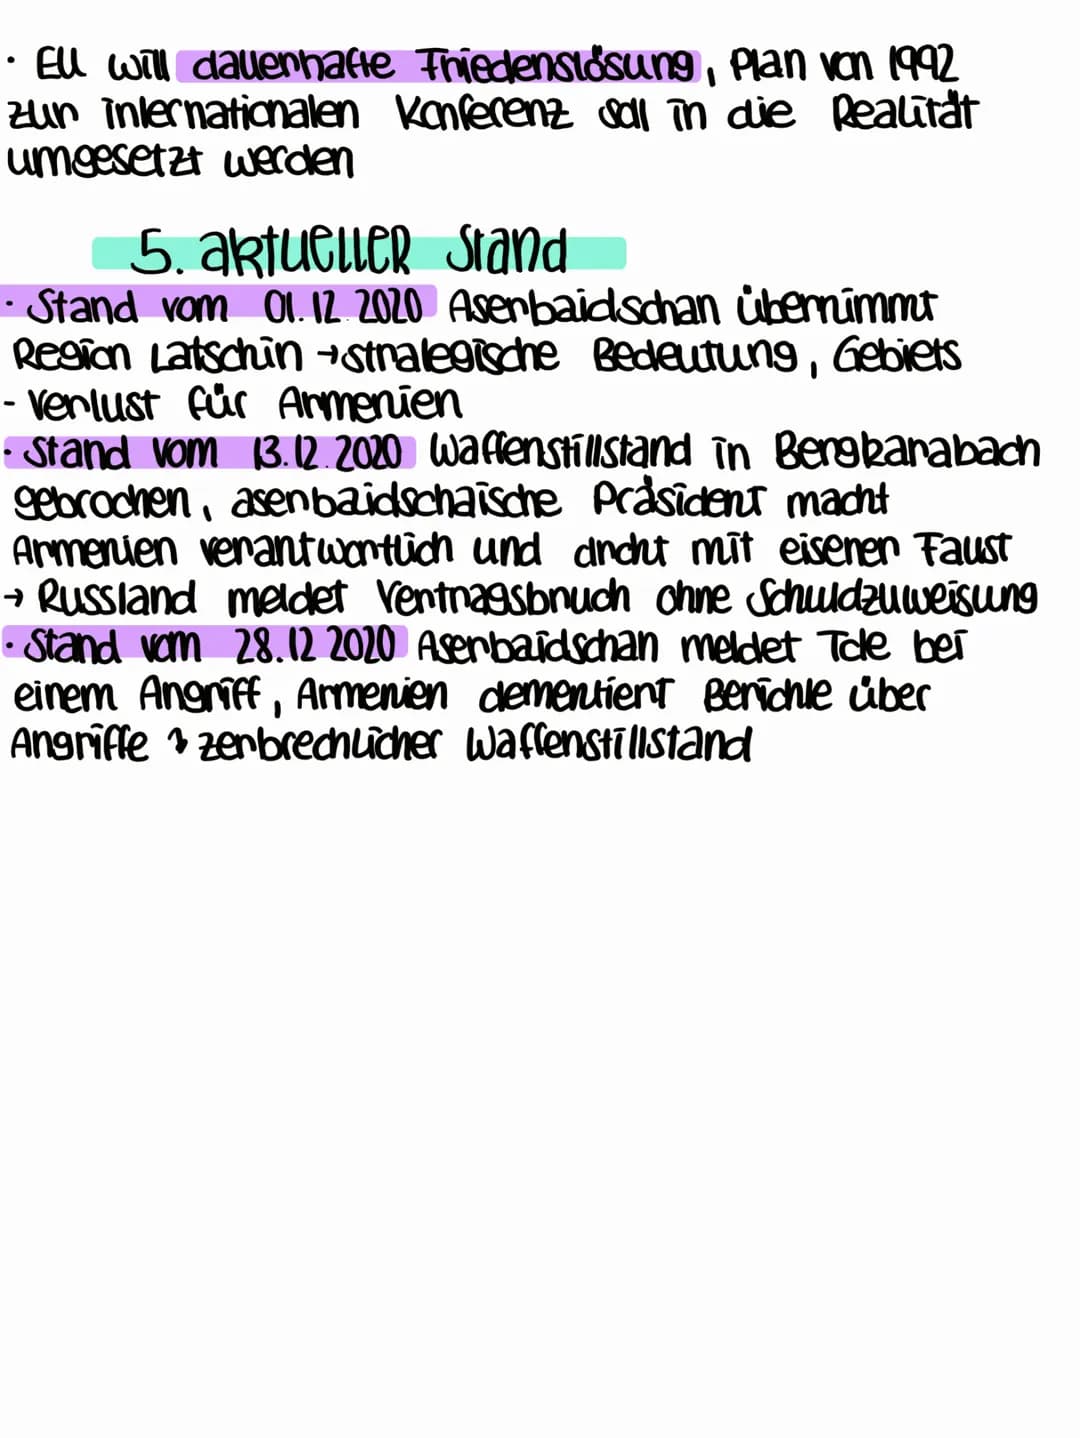 · EU will dauerhafte Friedenslösung, Plan von 1992
zur internationalen Konferenz soll in die Realität
umgesetzt werden
5. aktueller Stand
· Stand vom 01.12.2020 Aserbaidschan übernimmt
Region Latschin → strategische Bedeutung, Gebiets
- Verlust für Armenien
· Stand vom 13.12.2020 Waffenstillstand in Bergkarabach
gebrochen, aserbaidschaische Präsident macht
Armenien verantwortlich und droht mit eisener Faust
→ Russland meldet Vertragsbruch ohne Schuldzuweisung
· Stand vom 28.12 2020 Aserbaidschan meldet Tote bei
einem Angriff, Armenien dementiert Berichte über
Angriffe → zerbrechlicher Waffenstillstand